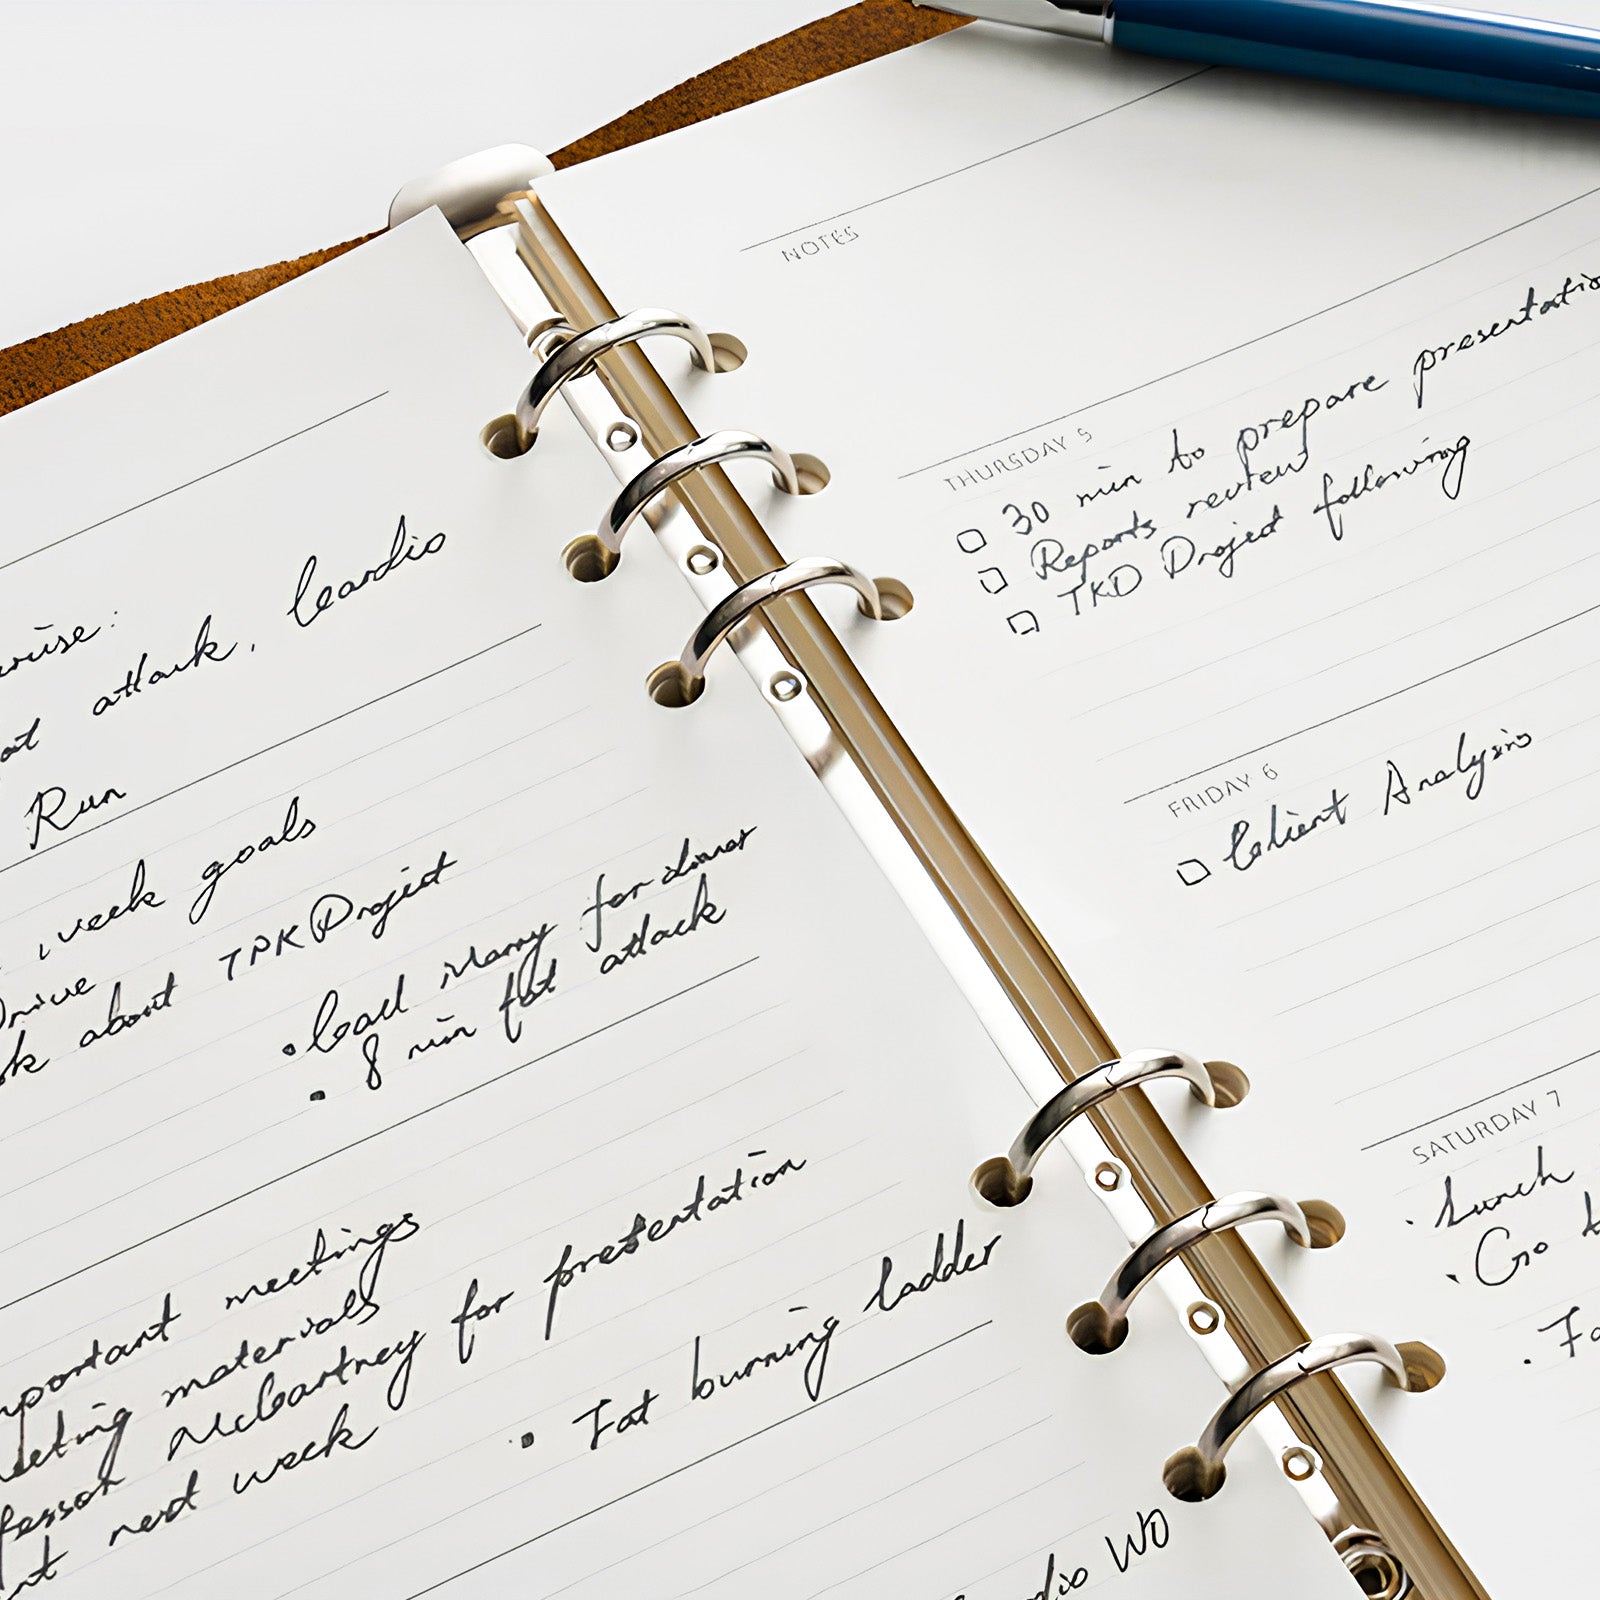 attack, Cardio
Run
week goals
about TPK Project
• Call Marry for dinner
• 8 min fat attack
meetings
materials
McCartney for presentation
next week
• Fat burning ladder
WO
NOTES
THURSDAY 5
30 min to prepare
Reports review
TKD Project following
FRIDAY 6
Client Analysis
SATURDAY 7
• Lunch
• Go